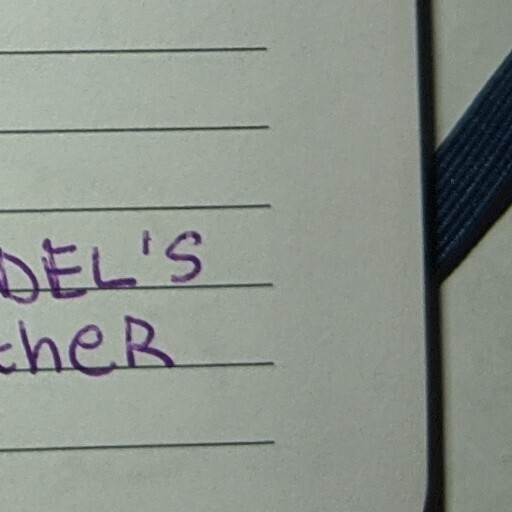 DEL'S
theR